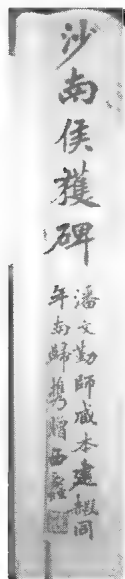 沙南侯獲碑
潘文勤師臧本建赮同
年南歸携贈西蠡